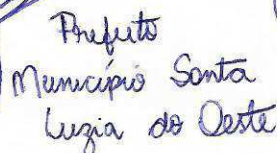 Prefeito
Município Santa
Luzia do Oeste